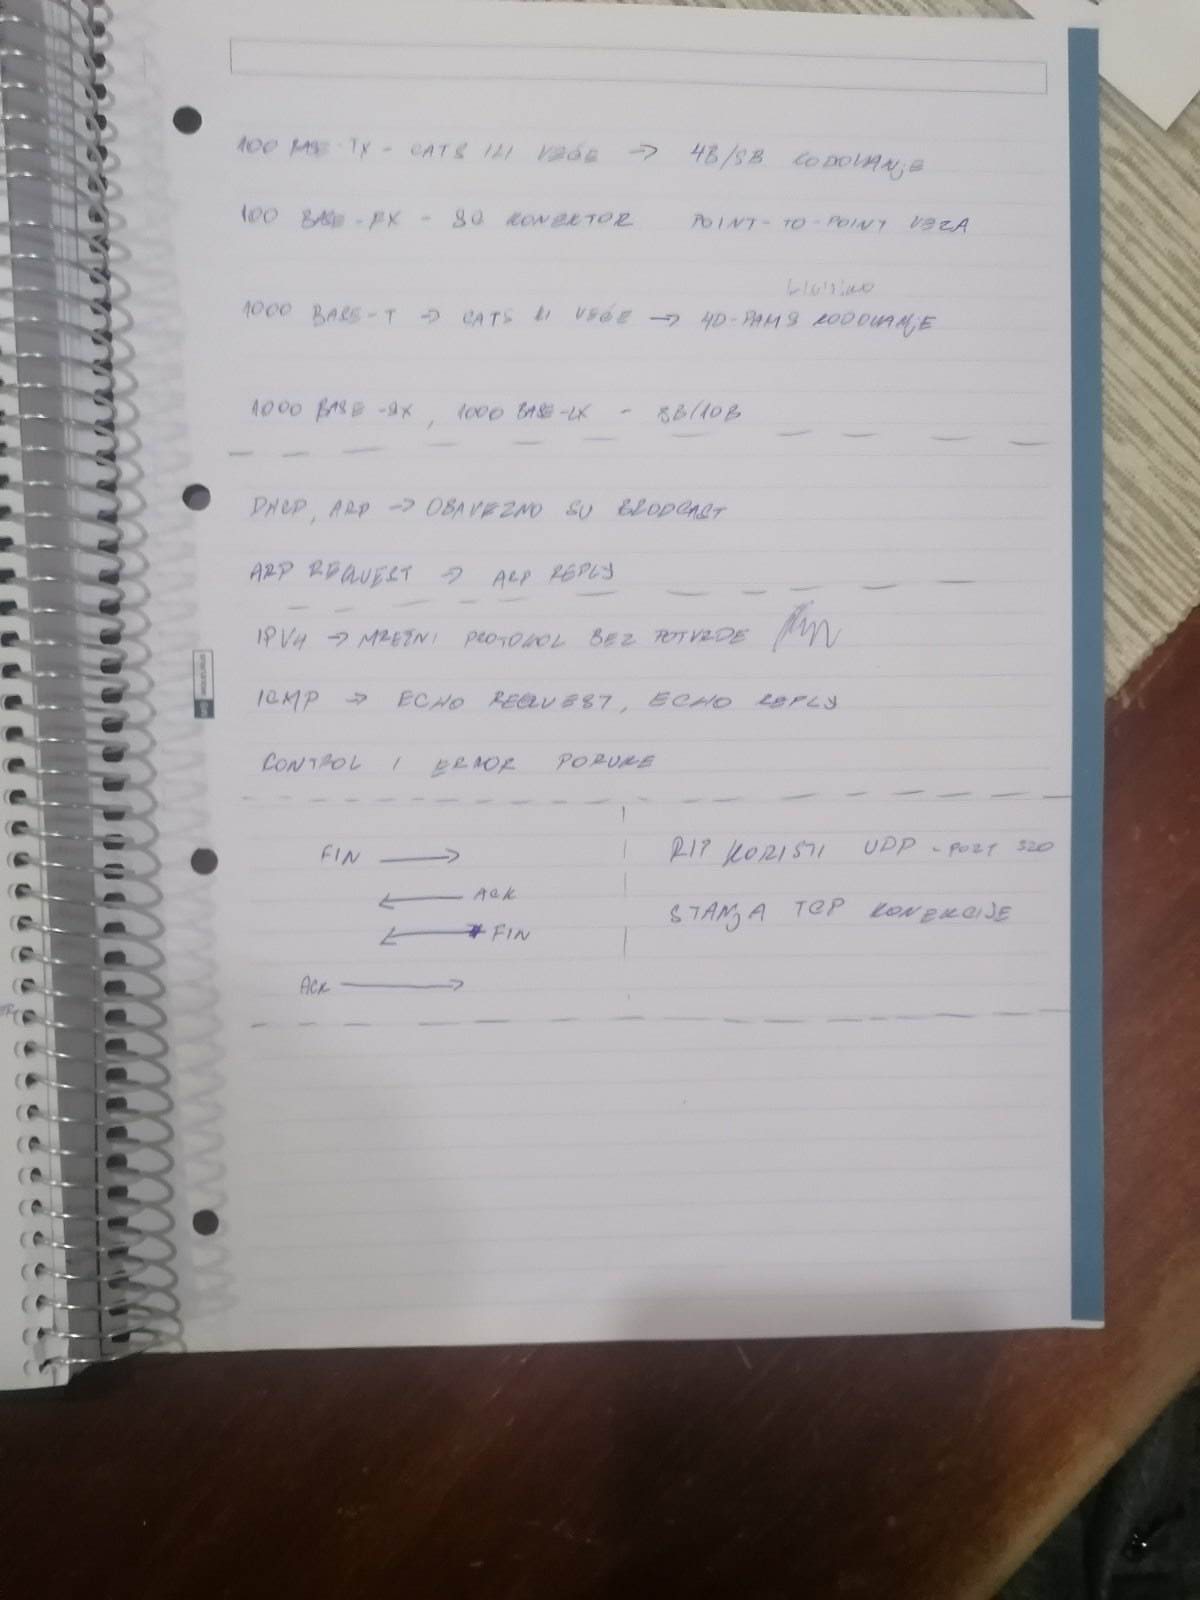 100 BASE-TX - CAT5 ILI VEĆE → 4B/5B KODOVANjE
100 BASE-FX - SC KONEKTOR POINT-TO-POINT VEZA
1000 BASE-T → CAT5 ILI VEĆE → 4D-PAM5 KODOVANjE
1000 BASE-SX, 1000 BASE-LX - 8B/10B
DHCP, ARP → OBAVEZNO SU BRODCAST
ARP REQUEST → ARP REPLY
IPV4 → MREŽNI PROTOKOL BEZ POTVRDE
ICMP → ECHO REQUEST, ECHO REPLY
CONTROL I ERROR PORUKE
FIN →
← ACK
← FIN
ACK →
RIP KORISTI UDP - PORT 520
STANjA TCP KONEKCIJE